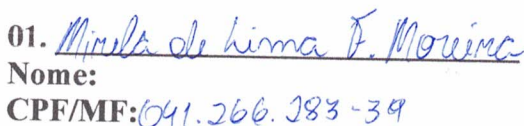 01. Mirela de Lima F. Moreira
Nome:
CPF/MF: 041.266.283-39